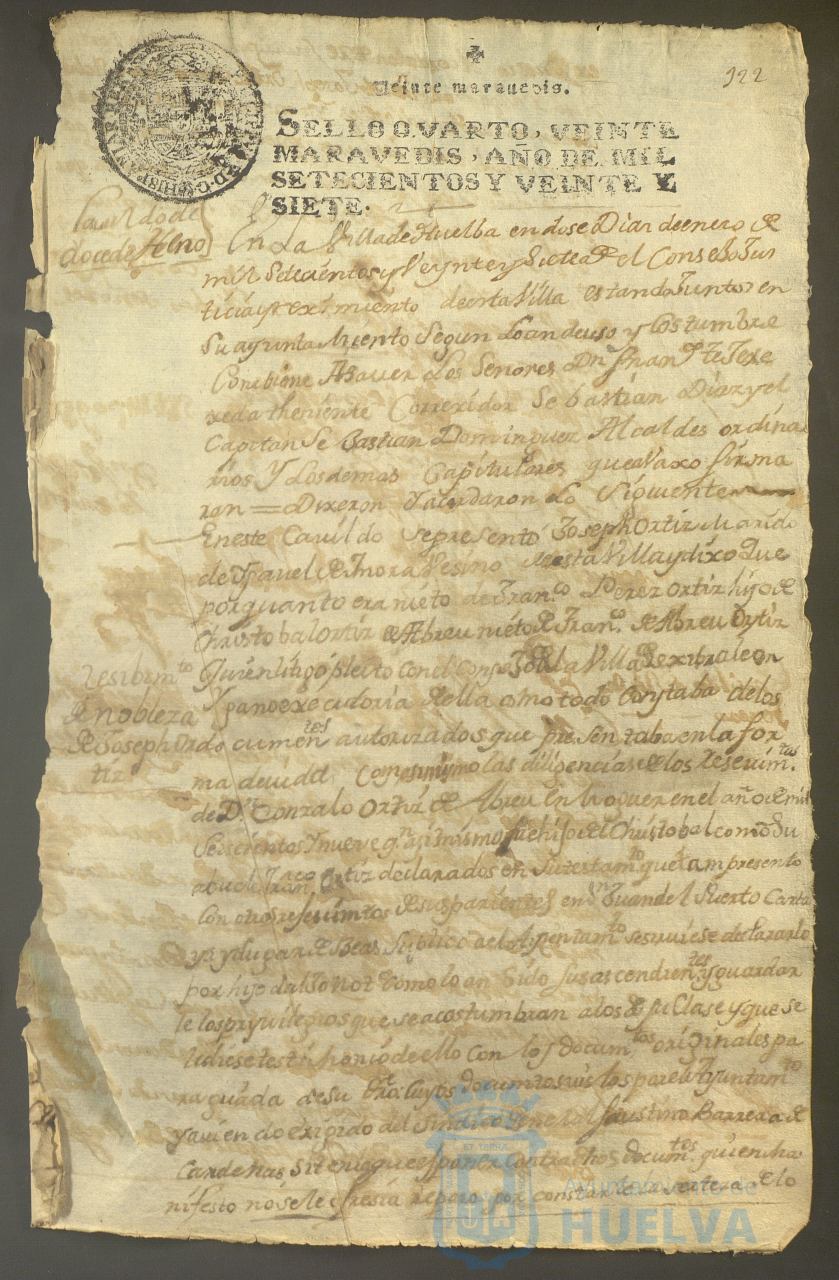 922
Veinte maravedis.
SELLO QVARTO, VEINTE
MARAVEDIS, AÑO DE MIL
SETECIENTOS Y VEINTE Y
SIETE.
Cavildo de
doce de Heno
En La Villa de Huelba en dose Dias de enero de
mil Setecientos y Veynte y Siete a el Consejo Jus
ticia y reximiento de esta Villa estando Juntos en
Su ayuntamiento Segun Lo an de uso y Costumbre
Conbiene A Saver Los Senores Dn Franco de Texe
xeda theniente Correxidor Sebastian Diaz y el
Capitan Sebastian Dominguez Alcaldes ordina
rios Y Los demas Capitulares que avaxo firma
ran = Dixeron Y acordaron Lo Siguiente
En este Cavildo Se presento Joseph Ortiz Marido
de Ysavel de Mora Vesino de esta Villa y dixo que
por quanto era nieto de Franco Perez Ortiz hijo de
Christobal Ortiz de Abreu nieto de Franco de Abreu Ortiz
Quien litigó pleito con el Consejo de la Villa de xibraleon
Y gano execcutoria de ella como todo Constaba de los
Resibimto
de nobleza
de Joseph Or
tiz
documentes autorizados que presentaba en la for
ma devida Con las diligencias de los reseuimtos
de Dn Gonzalo Ortiz de Abreu en el año de mil
Seiscientos Y nueve qn asi mismo fue hijo del Christobal como Su
abuelo Franco Ortiz declarados en Su testamto que tam presento
Con otros reseuimtos de sus parientes en Sn Juan del Puerto Carta
ya y Lugar de Beas Suplico a el Ayuntamto se sirviese declararlo
por hijo dalgo como lo an Sido sus ascendientes y guardar
le los privilegios que se acostumbran a los de su Clase y que se
le diese testimonio de ello con los documtos originales pa
ra guarda de su dro Cuyos documtos vistos por el Ayuntamto
y aviendo exigido del Sindico General Faustino Barrera de
Cardenas si tenia que esponer contra dhos documtos quien ma
nifesto no se le ofresia reparo por constarle la serteza de lo
Ayuntamiento de
HUELVA